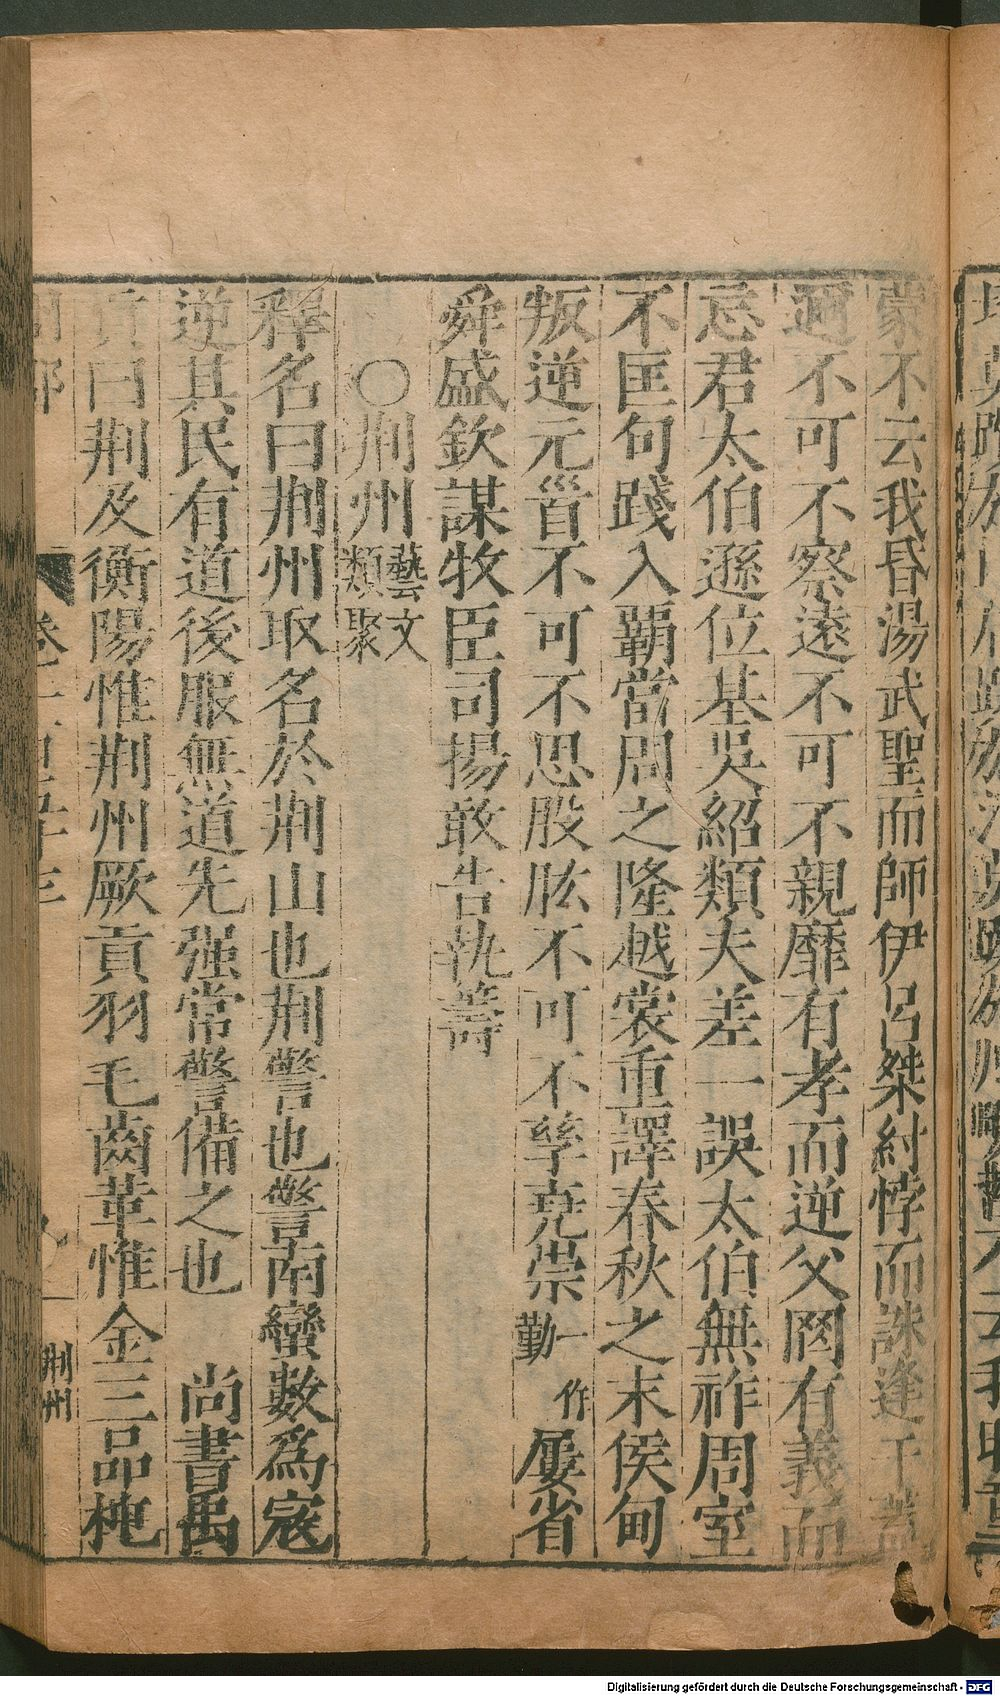 蒙不云我昏湯武聖而師伊呂桀紂悖而誅逢干蓋
邇不可不察遠不可不親靡有孝而逆父罔有義而
忘君太伯遜位基吳紹類夫差一誤太伯無祚周室
不匡句踐入覇當周之隆越裳重譯春秋之末侯甸
叛逆元首不可不思股肱不可不孳堯崇一作勤屢省
舜盛欽謀牧臣司揚敢告執籌
〇荆州藝文類聚
釋名曰荆州取名於荆山也荆警也警南蠻數爲寇
逆其民有道後服無道先强常警備之也 尚書禹
貢曰荆及衡陽惟荆州厥貢羽毛齒革惟金三品杶
荆州
Digitalisierung gefördert durch die Deutsche Forschungsgemeinschaft - DFG